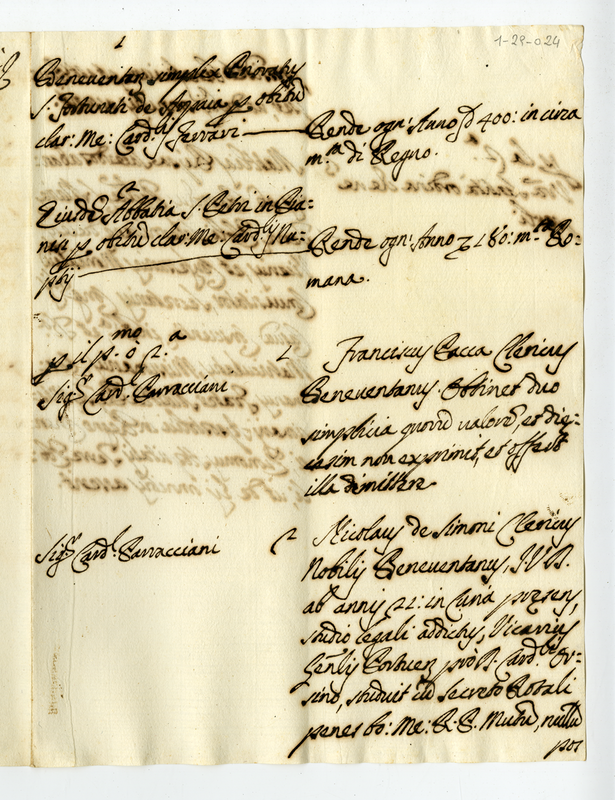 1-29-024
1
Beneventan simplex Prioratus
S. Fortunati de per obitũ
clar: Me: Card.lis Ferrari
Rende ogn' Anno d 400: in circa
m.ta di Regno.
2
Eiusd. Abbatia S. Petri in
per obitũ clar: Me: Card.lis
Rende ogn' Anno 180: m.ta Ro=
mana.
p il p.mo ò 2.a
Sig.r Card. Carracciani
1
Franciscus Pacca Clericus
Beneventanus. Obtinet duo
simplicia quorũ valorẽ, et die=
cesim non exprimit, et offert
illa dimittere
Sig.r Card. Carracciani
2
Nicolaus de Simoni Clericus
Nobilis Beneventanus, J.V.D.
ab annis 22: in Curia praesens,
studio legali addictus, Vicarius
Gen̄lis Portuen pro D. Card.li Or=
sino, studuit in Secreto Rotali
penes bo: Me: R. P. Mutũ, nullũ
por